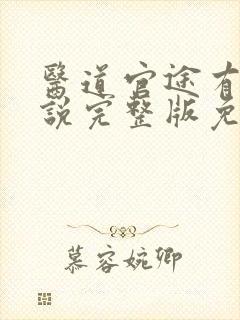 醫道官途有
說完整版免
慕容婉卿